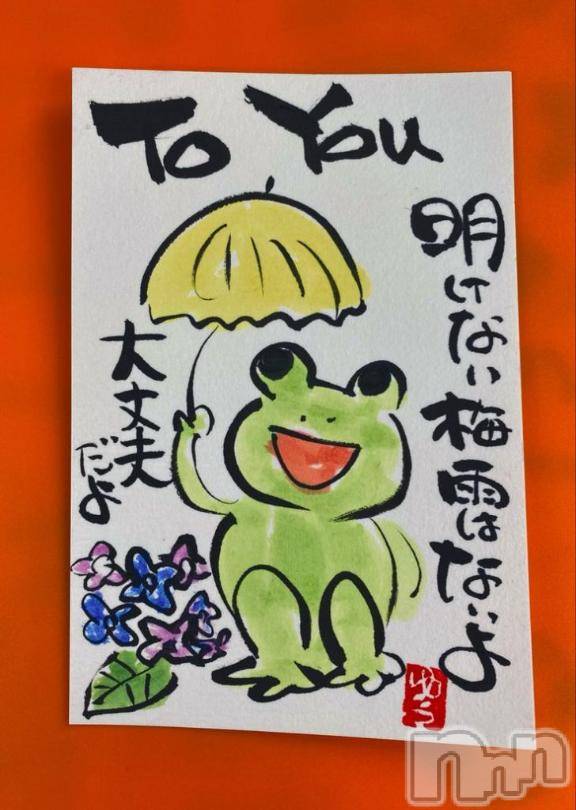 To You
明けない梅雨はないよ
大丈夫
だよ
ゆう